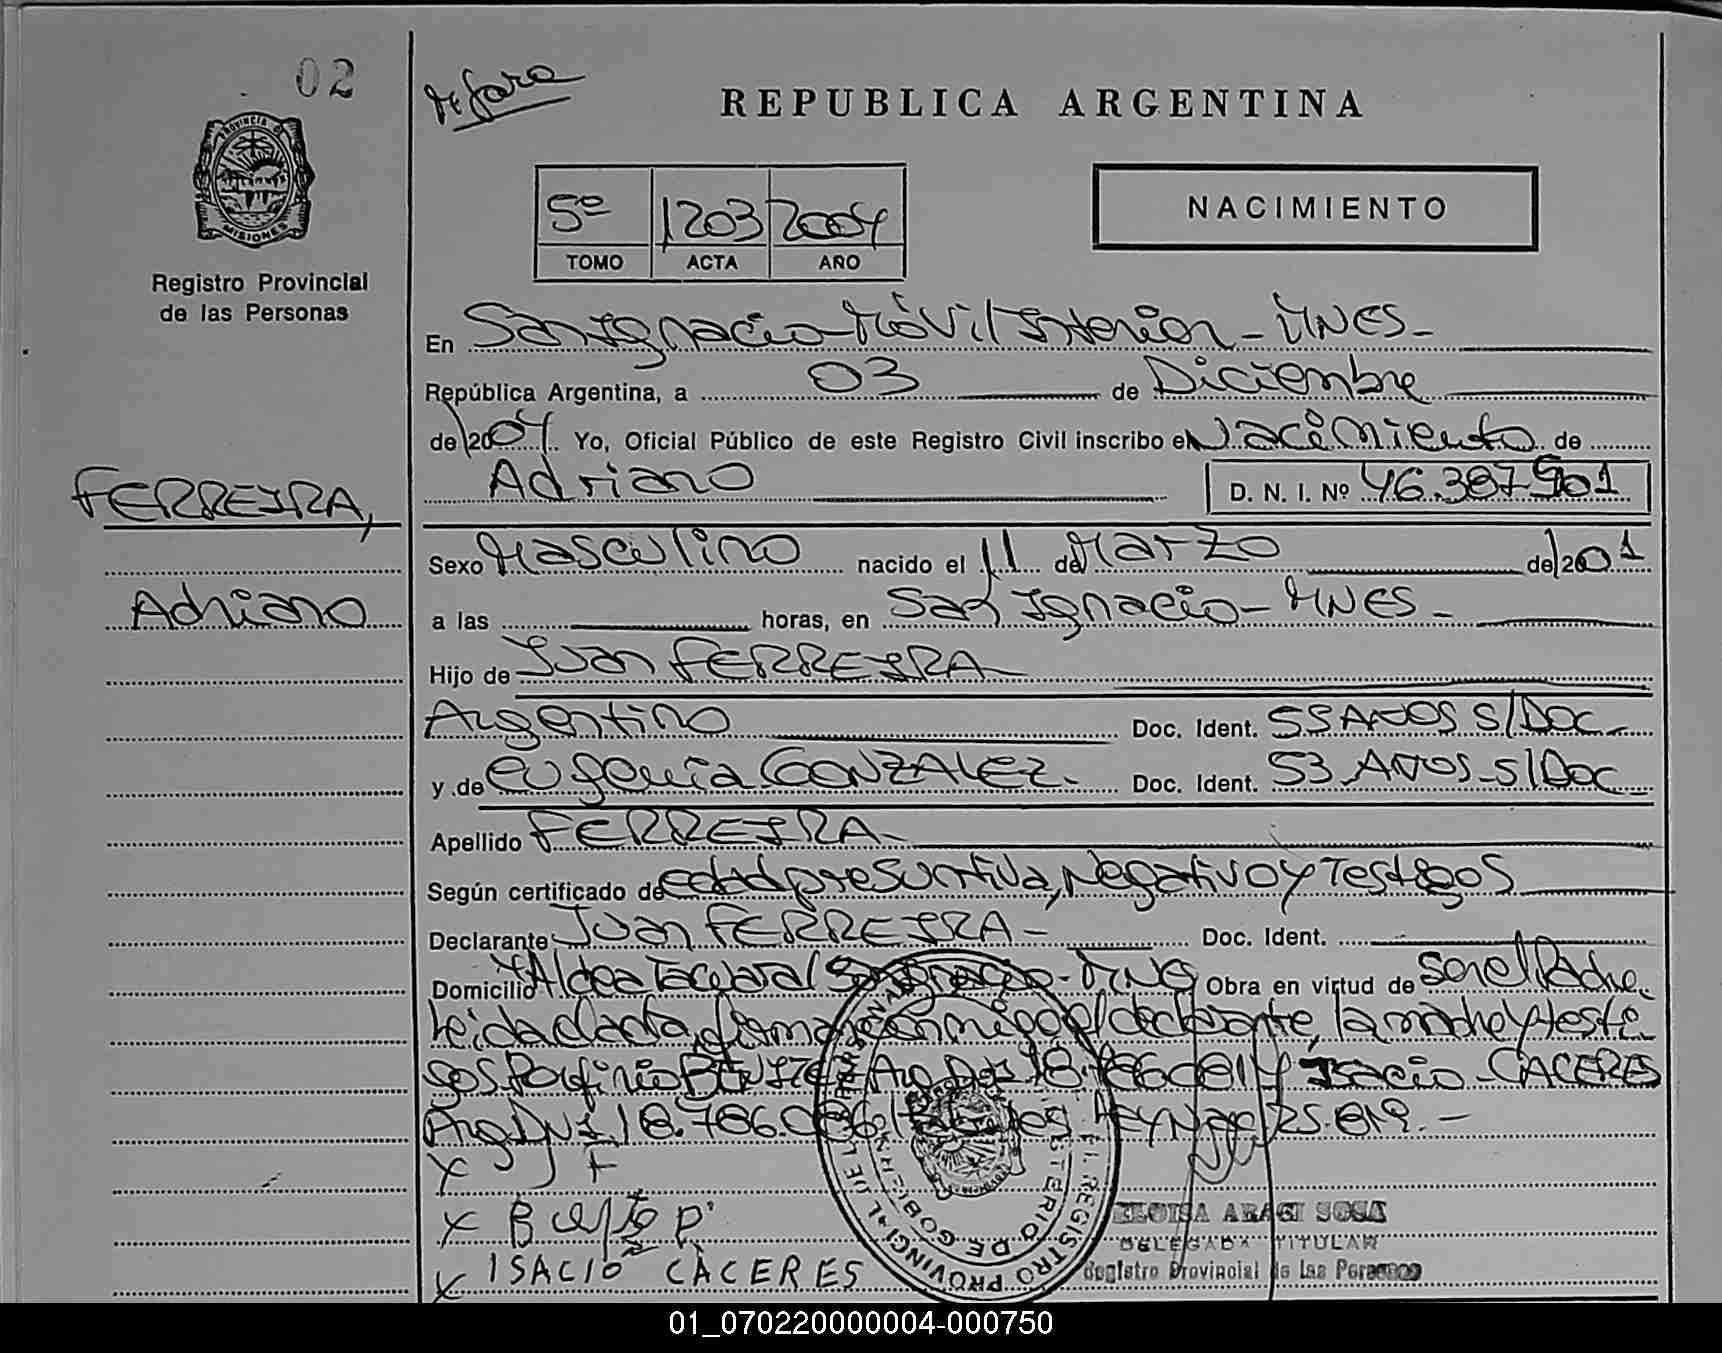 02
REPUBLICA ARGENTINA
PROVINCIA DE MISIONES
Registro Provincial
de las Personas
5º 1203 2004
TOMO ACTA AÑO
NACIMIENTO
En San Ignacio - Móvil Interior - MNES -
República Argentina, a 03 de Diciembre
de 2004. Yo, Oficial Público de este Registro Civil inscribo el Nacimiento de
Adriano D. N. I. Nº 46.387.901
FERREIRA,
Adriano
Sexo Masculino nacido el 11 de Marzo de 2001
a las horas, en San Ignacio - MNES -
Hijo de Juan FERREIRA
Argentino Doc. Ident. 55 AÑOS S/DOC -
y de Eugenia GONZALEZ - Doc. Ident. 53 AÑOS - S/Doc -
Apellido FERREIRA -
Según certificado de edad presuntiva, Negativo y Testigos
Declarante Juan FERREIRA - Doc. Ident.
Domicilio Aldea San Ignacio - MNES Obra en virtud de ser el Padre.
Leida el acta, firman conmigo el declarante, la madre y testi-
gos Porfirio Arg DNI 18. y Isacio - CACERES
Arg DNI 18.786.086 Ley Nac 25.819. -
X +
X B P.
X ISACIO CACERES
REGISTRO PROVINCIAL DE LAS PERSONAS
MINISTERIO DE GOBIERNO
ELOISA ARACI SOSA
DELEGADA TITULAR
Registro Provincial de Las Personas
01_070220000004-000750